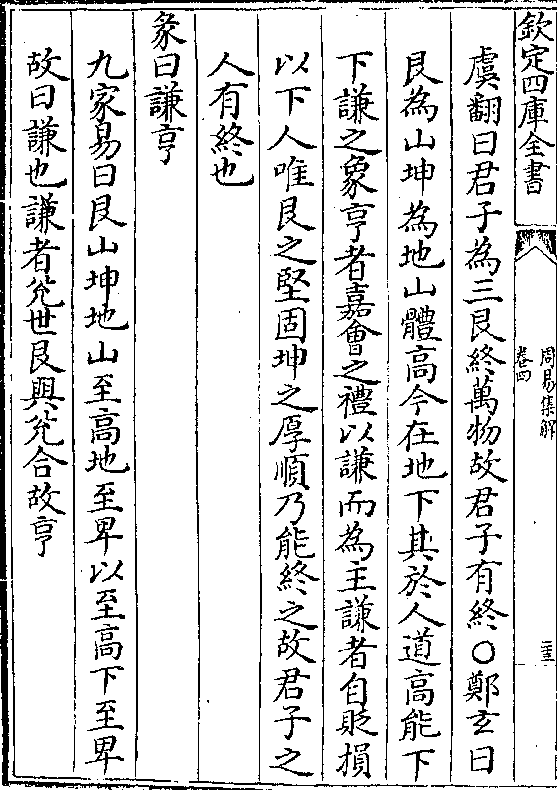 欽定四庫全書
周易集解
卷四
三
虞翻曰君子為三艮終萬物故君子有終○鄭玄曰
艮為山坤為地山體高今在地下其於人道高能下
下謙之象亨者嘉會之禮以謙而為主謙者自貶損
以下人唯艮之堅固坤之厚順乃能終之故君子之
人有終也
彖曰謙亨
九家易曰艮山坤地山至高地至卑以至高下至卑
故曰謙也謙者兊世艮與兊合故亨